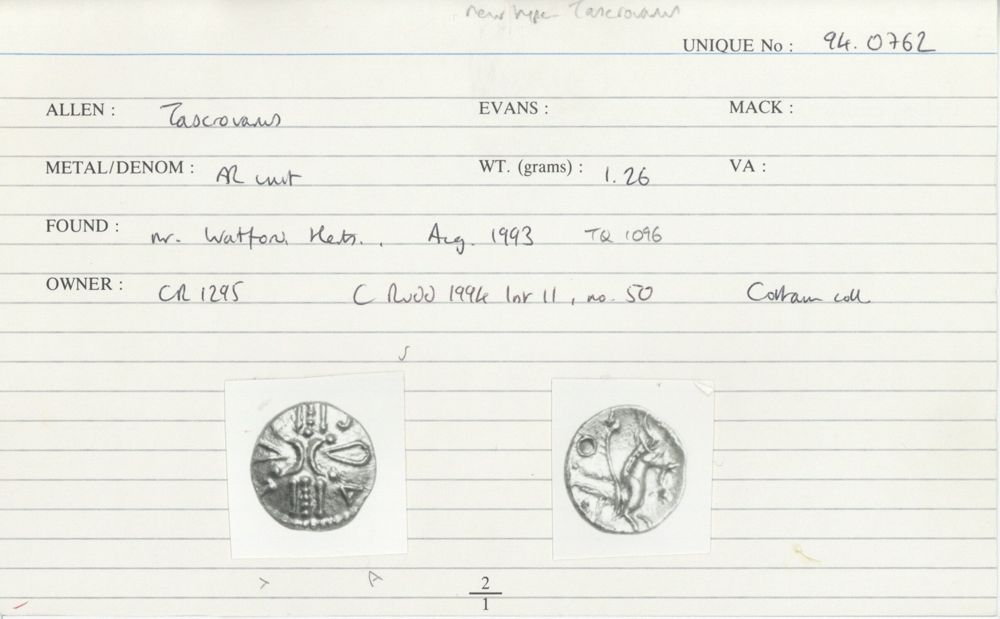 new type Tasciovanus
UNIQUE No : 94.0762
ALLEN : Tasciovanus EVANS : MACK :
METAL/DENOM : AR unit WT. (grams) : 1.26 VA :
FOUND : nr. Watford, Herts., Aug. 1993 TQ 1096
OWNER : CR 1295 C Rudd 1994 list 11, no. 50 Cottam coll.
S
V A
2
1